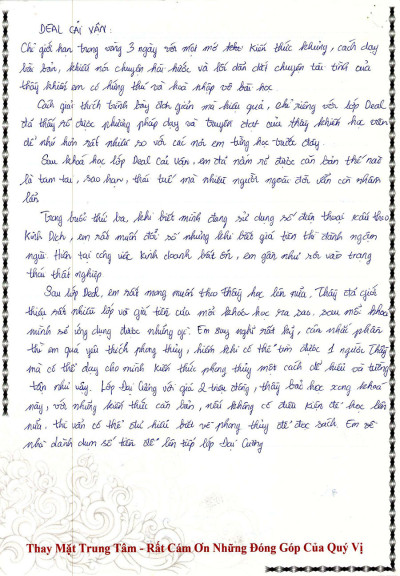 DEAL CẢI VẬN:
Chỉ giới hạn trong vòng 3 ngày với một mớ kiến thức khủng, cách dạy
bài bản, khiếu nói chuyện hài hước và lối dẫn dắt chuyện tài tình của
thầy khiến em có hứng thú và hoà nhập về bài học.
Cách giải thích trình bày đơn giản mà hiệu quả, chỉ riêng với lớp Deal
đã thấy rõ được phương pháp dạy và truyền đạt của thầy khiến học viên
dễ nhớ hơn rất nhiều so với các nơi em từng học trước đây.
Sau khoá học lớp Deal Cải Vận, em đã nắm rõ được căn bản thế nào
là tam tai, sao hạn, thái tuế mà nhiều người ngoài đời vẫn còn nhầm
lẫn
Trong buổi thứ ba, khi biết mình đang sử dụng số điện thoại xấu theo
Kinh Dịch, em rất muốn đổi số nhưng khi biết giá tiền thì đành ngậm
ngùi. Hiện tại công việc kinh doanh bất ổn, em gần như rơi vào trạng
thái thất nghiệp
Sau lớp Deal, em rất mong muốn theo thầy học lên nữa. Thầy đã giới
thiệu rất nhiều lớp và giá tiền của mỗi khoá học ra sao, sau mỗi khoá
mình sẽ ứng dụng được những gì. Em suy nghĩ rất kỹ, của nhiều phần
thì em quá yêu thích phong thủy, hiếm khi có thể tìm được 1 người Thầy
mà có thể dạy cho mình kiến thức phong thủy một cách dễ hiểu và tường
tận như vậy. Lớp Đại Cương với giá 2 triệu đồng, thầy bảo học xong khoá
này, với những kiến thức căn bản, nếu không có điều kiện để học lên
nữa thì vẫn có thể đủ hiểu biết về phong thủy để đọc sách. Em sẽ
nhà dành dụm số tiền để lên tiếp lớp Đại Cương
Thay Mặt Trung Tâm - Rất Cám Ơn Những Đóng Góp Của Quý Vị